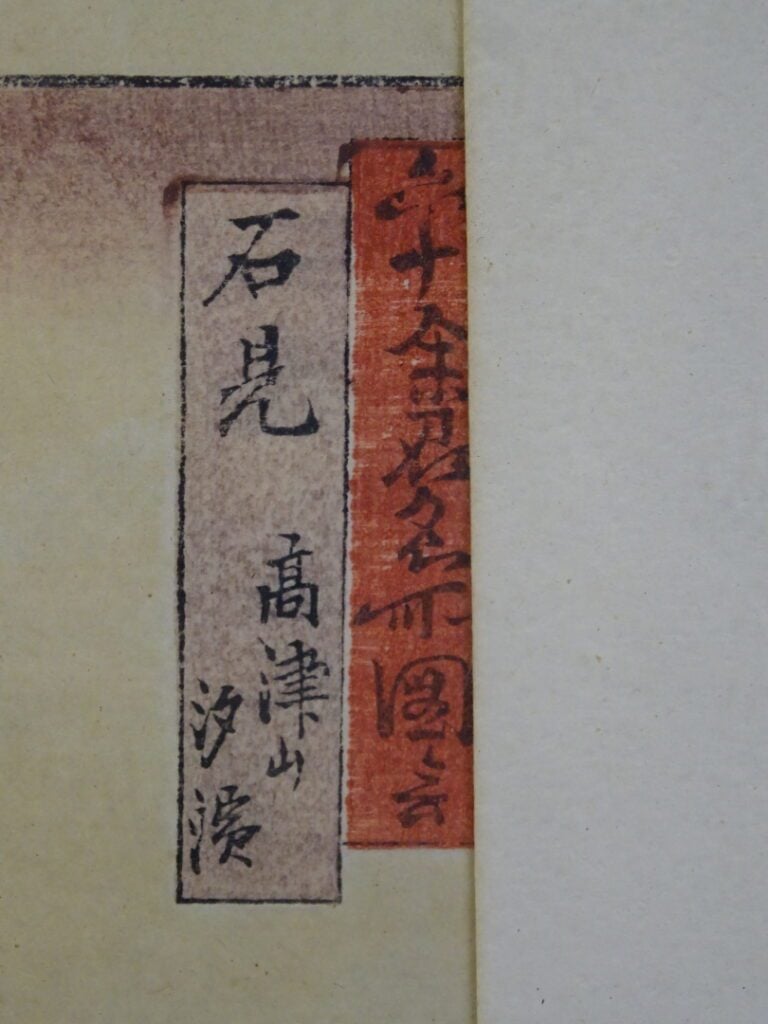 六十余州名所圖会
石見
高津山
汐濱